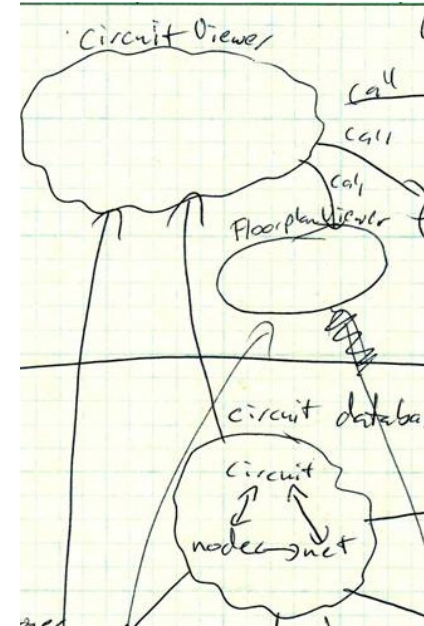 Circuit Viewer
call
call
call
Floorplan Viewer
circuit databa
circuit
node
net